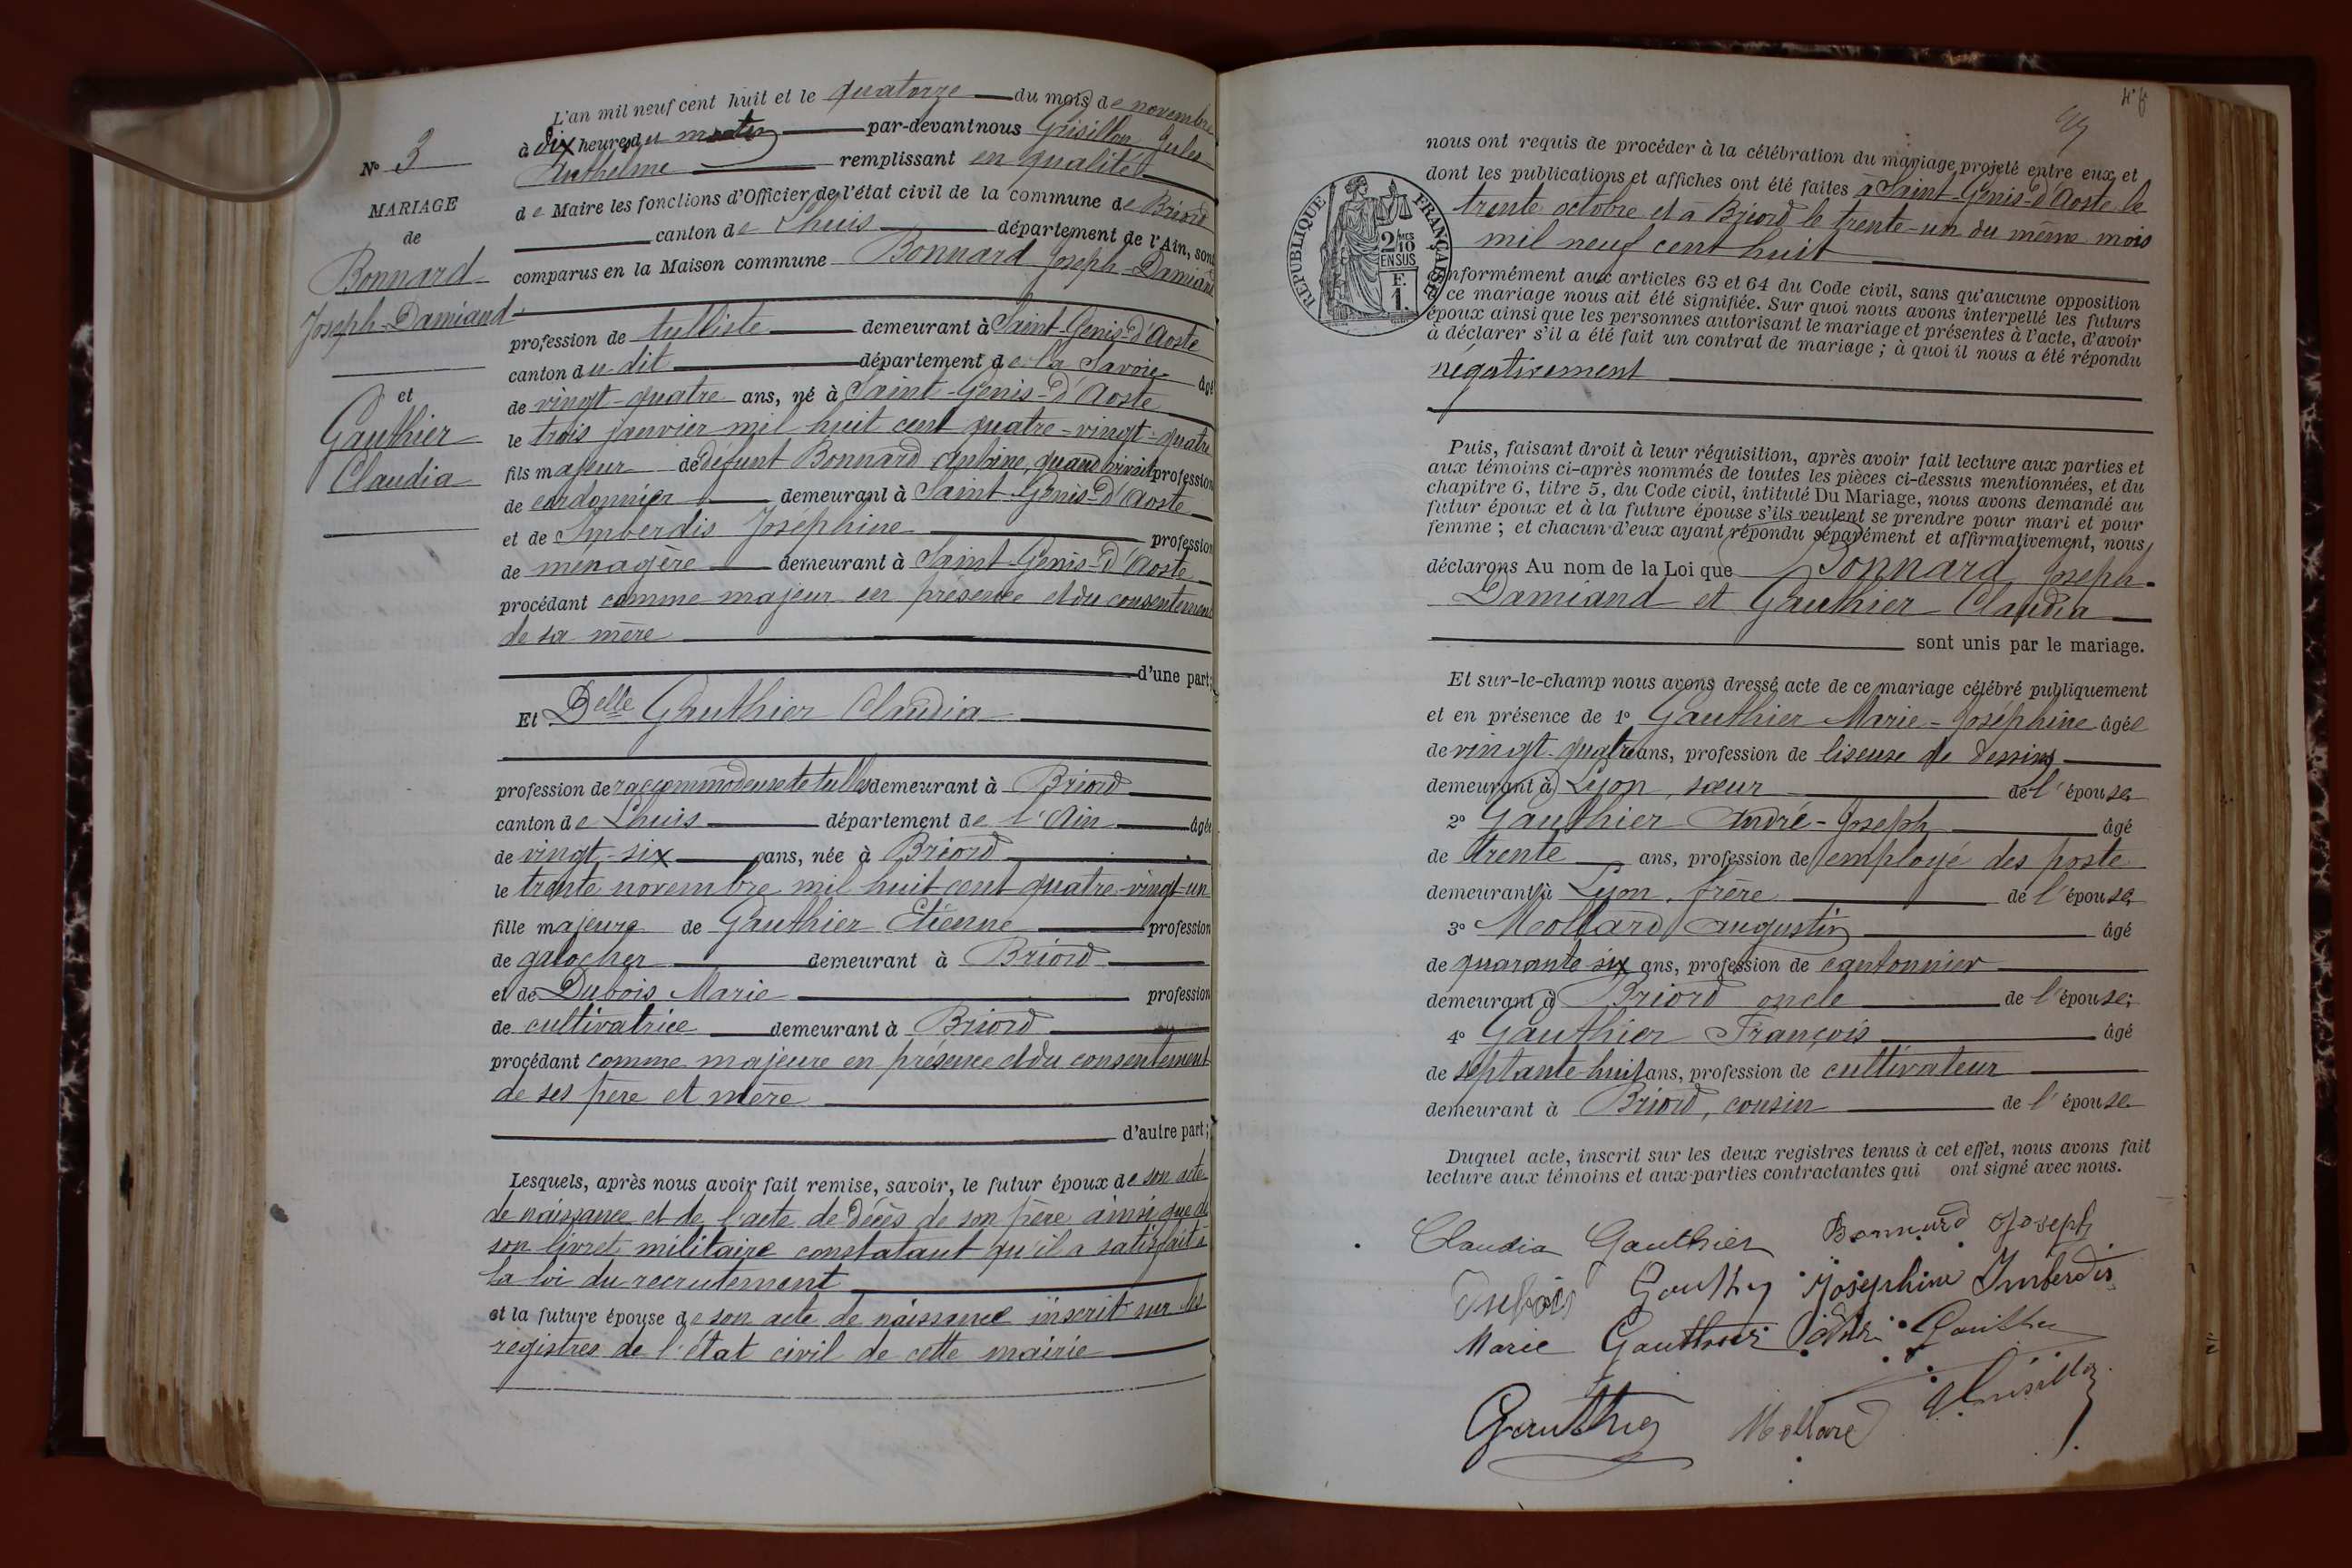 L'an mil neuf cent huit et le quatorze du mois de novembre
à dix heures du matin par-devant nous Grisillon Jules
Anthelme remplissant en qualité
de Maire les fonctions d'Officier de l'état civil de la commune de Briord
canton de Lhuis département de l'Ain, sont
comparus en la Maison commune Bonnard Joseph-Damiand
N° 3
MARIAGE
de
Bonnard
Joseph-Damiand
et
Gauthier
Claudia
profession de tulliste demeurant à Saint-Genis-d'Aoste
canton du dit département de la Savoie âgé
de vingt-quatre ans, né à Saint-Genis-d'Aoste
le trois janvier mil huit cent quatre-vingt-quatre
fils majeur de défunt Bonnard Antoine, quand vivait profession
de cordonnier demeurant à Saint-Genis-d'Aoste
et de Imberdis Joséphine profession
de ménagère demeurant à Saint-Genis-d'Aoste
procédant comme majeur en présence et du consentement
de sa mère
d'une part;
Et Delle Gauthier Claudia
profession de raccommodeuse de tulles demeurant à Briord
canton de Lhuis département de l'Ain âgée
de vingt-six ans, née à Briord
le trente novembre mil huit cent quatre-vingt-un
fille majeure de Gauthier Etienne profession
de galocher demeurant à Briord
et de Dubois Marie profession
de cultivatrice demeurant à Briord
procédant comme majeure en présence et du consentement
de ses père et mère
d'autre part;
Lesquels, après nous avoir fait remise, savoir, le futur époux de son acte
de naissance et de l'acte de décès de son père ainsi que de
son livret militaire constatant qu'il a satisfait à
la loi du recrutement
et la future épouse de son acte de naissance inscrit sur les
registres de l'état civil de cette mairie
nous ont requis de procéder à la célébration du mariage projeté entre eux, et
dont les publications et affiches ont été faites à Saint-Genis-d'Aoste le
trente octobre et à Briord le trente-un du même mois
mil neuf cent huit
RÉPUBLIQUE FRANÇAISE
2/10 EN SUS
F. 1.
conformément aux articles 63 et 64 du Code civil, sans qu'aucune opposition
à ce mariage nous ait été signifiée. Sur quoi nous avons interpellé les futurs
époux ainsi que les personnes autorisant le mariage et présentes à l'acte, d'avoir
à déclarer s'il a été fait un contrat de mariage; à quoi il nous a été répondu
négativement
Puis, faisant droit à leur réquisition, après avoir fait lecture aux parties et
aux témoins ci-après nommés de toutes les pièces ci-dessus mentionnées, et du
chapitre 6, titre 5, du Code civil, intitulé Du Mariage, nous avons demandé au
futur époux et à la future épouse s'ils veulent se prendre pour mari et pour
femme; et chacun d'eux ayant répondu séparément et affirmativement, nous
déclarons Au nom de la Loi que Bonnard Joseph-
Damiand et Gauthier Claudia
sont unis par le mariage.
Et sur-le-champ nous avons dressé acte de ce mariage célébré publiquement
et en présence de 1° Gauthier Marie-Joséphine âgée
de vingt-quatre ans, profession de liseuse de dessins
demeurant à Lyon, sœur de l'épouse
2° Gauthier André-Joseph âgé
de trente ans, profession de employé des poste
demeurant à Lyon, frère de l'épouse;
3° Mollard Augustin âgé
de quarante six ans, profession de cantonnier
demeurant à Briord oncle de l'épouse;
4° Gauthier François âgé
de septante-huit ans, profession de cultivateur
demeurant à Briord, cousin de l'épouse
Duquel acte, inscrit sur les deux registres tenus à cet effet, nous avons fait
lecture aux témoins et aux parties contractantes qui ont signé avec nous.
Claudia Gauthier Bonnard Joseph
Dubois Gauthier Joséphine Imberdis
Marie Gauthier Gauthier
Gauthier Mollard Grisillon